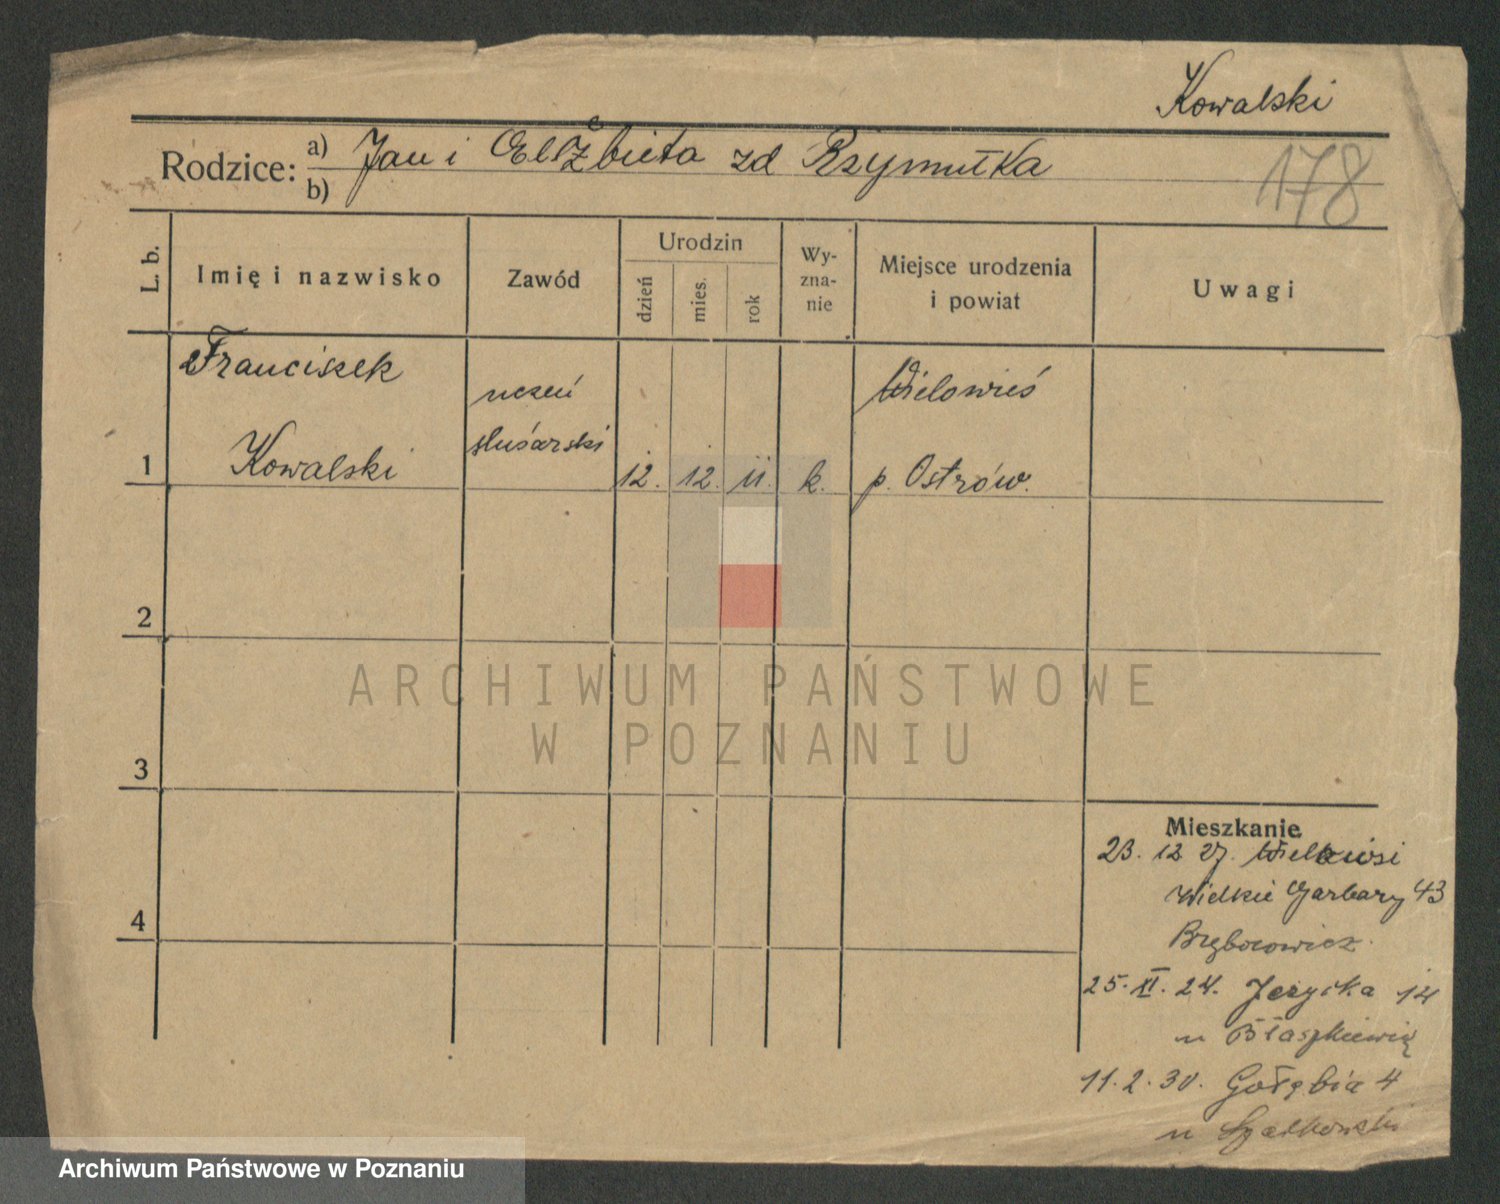 Kowalski
Rodzice: a) Jan i Elżbieta zd Rzymułka
b)
178
L. b.
Imię i nazwisko
Zawód
Urodzin
dzień
mies.
rok
Wy-
zna-
nie
Miejsce urodzenia
i powiat
Uwagi
1
Franciszek
Kowalski
uczeń
ślusarski
12.
12.
11.
k.
Wielowieś
p. Ostrów.
2
ARCHIWUM PAŃSTWOWE
W POZNANIU
3
4
Mieszkanie
23. 12 27. Wielowsi
Wielkie Garbary 43
25. XI. 24. Jeżycka 14
u Błaszkiewicz
11. 2. 30. Gołębia 4
u
Archiwum Państwowe w Poznaniu